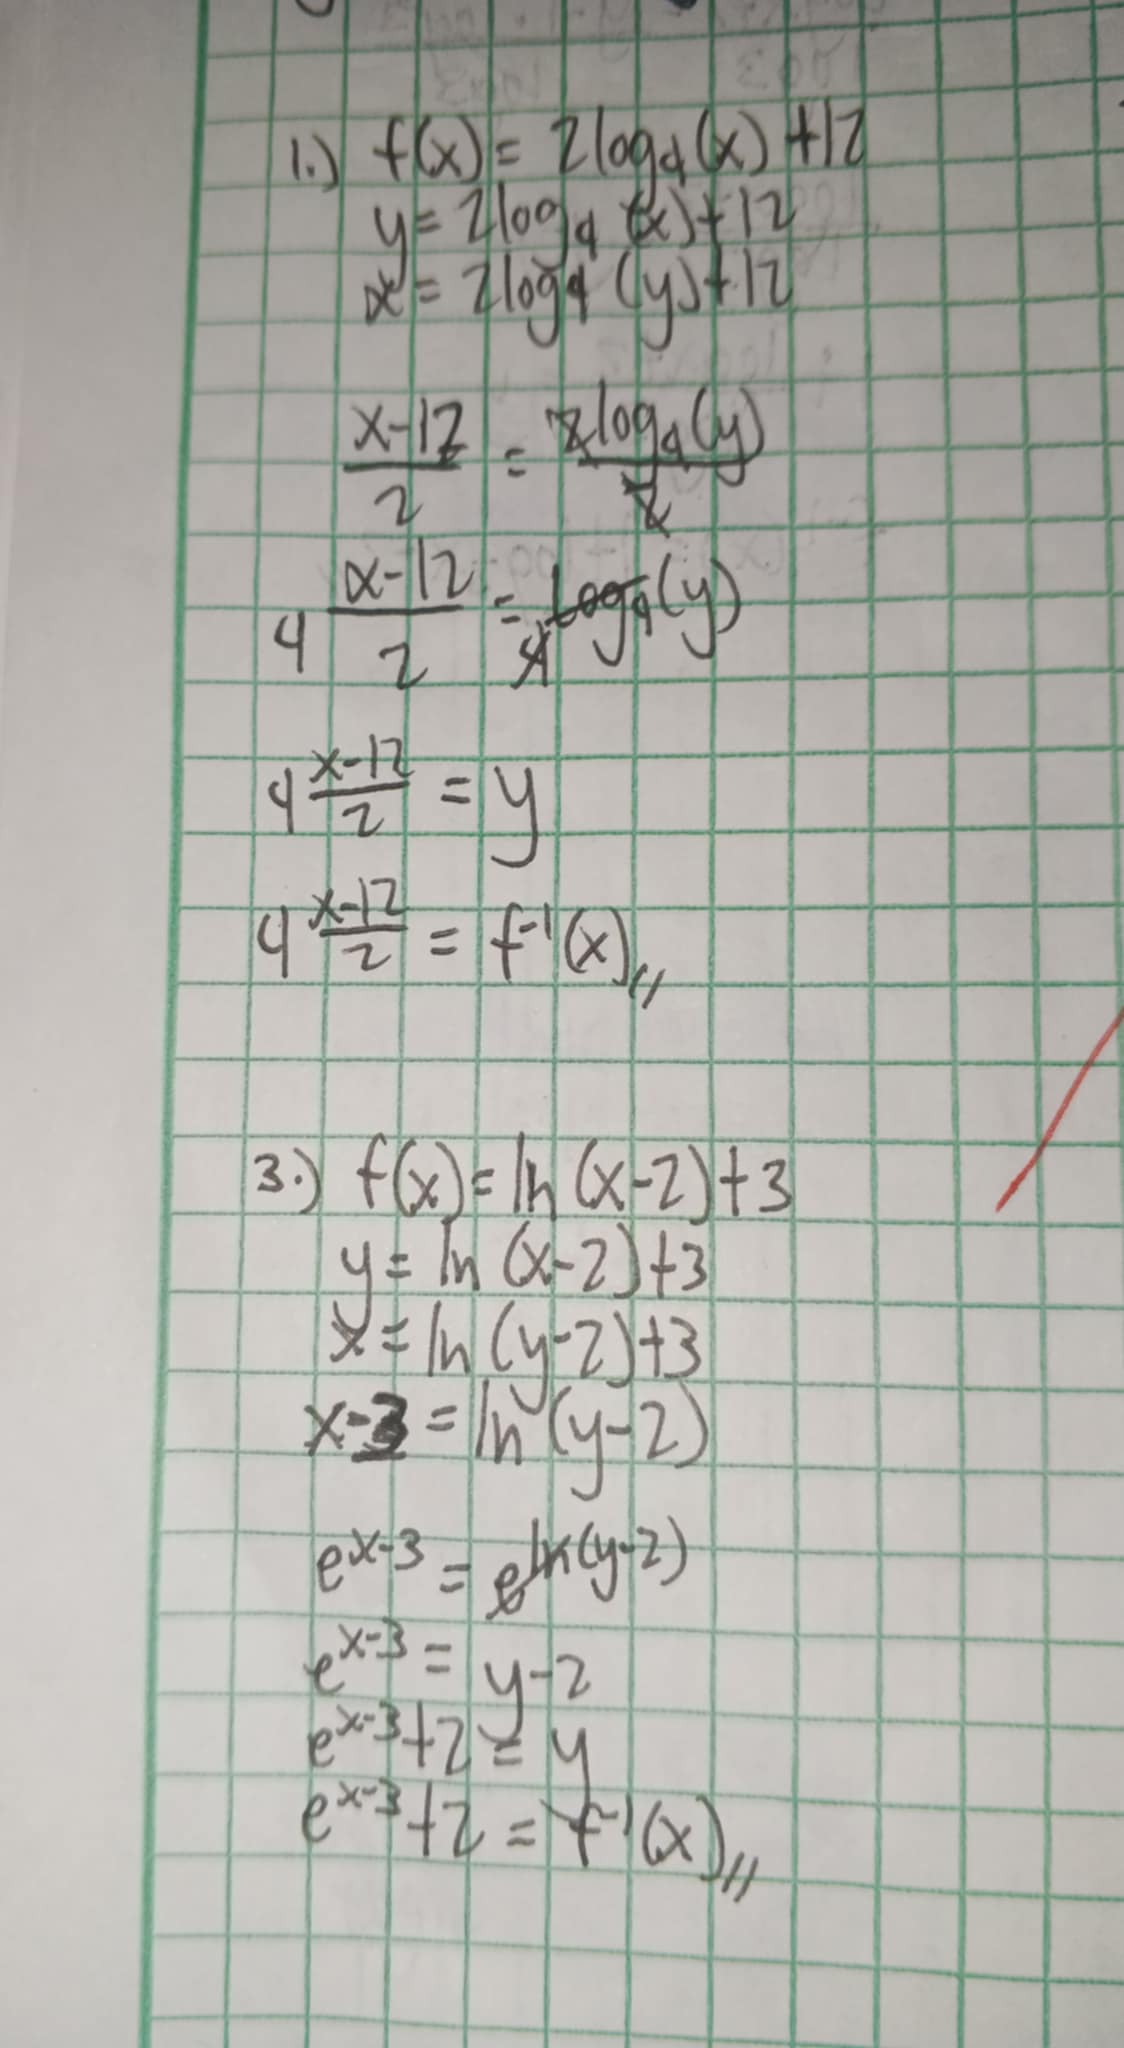 1.) f(x) = 2log₄(x) +12
y = 2log₄ (x)+12
x = 2log₄ (y)+12
x-12 / 2 = 2log₄(y) / 2
4^(x-12 / 2) = 4^(log₄(y))
4^(x-12 / 2) = y
4^(x-12 / 2) = f⁻¹(x)//
3.) f(x) = ln (x-2)+3
y = ln (x-2)+3
x = ln (y-2)+3
x-3 = ln (y-2)
e^(x-3) = e^(ln(y-2))
e^(x-3) = y-2
e^(x-3)+2 = y
e^(x-3)+2 = f⁻¹(x)//